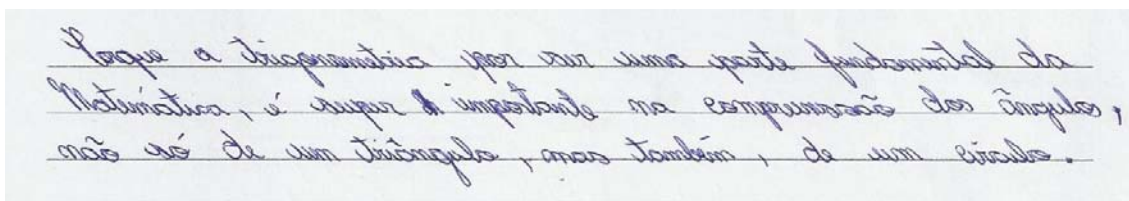 Porque a trigonometria por ser uma parte fundamental da
Matemática, é super importante na compreensão dos ângulos,
não só de um triângulo, mas também, de um círculo.